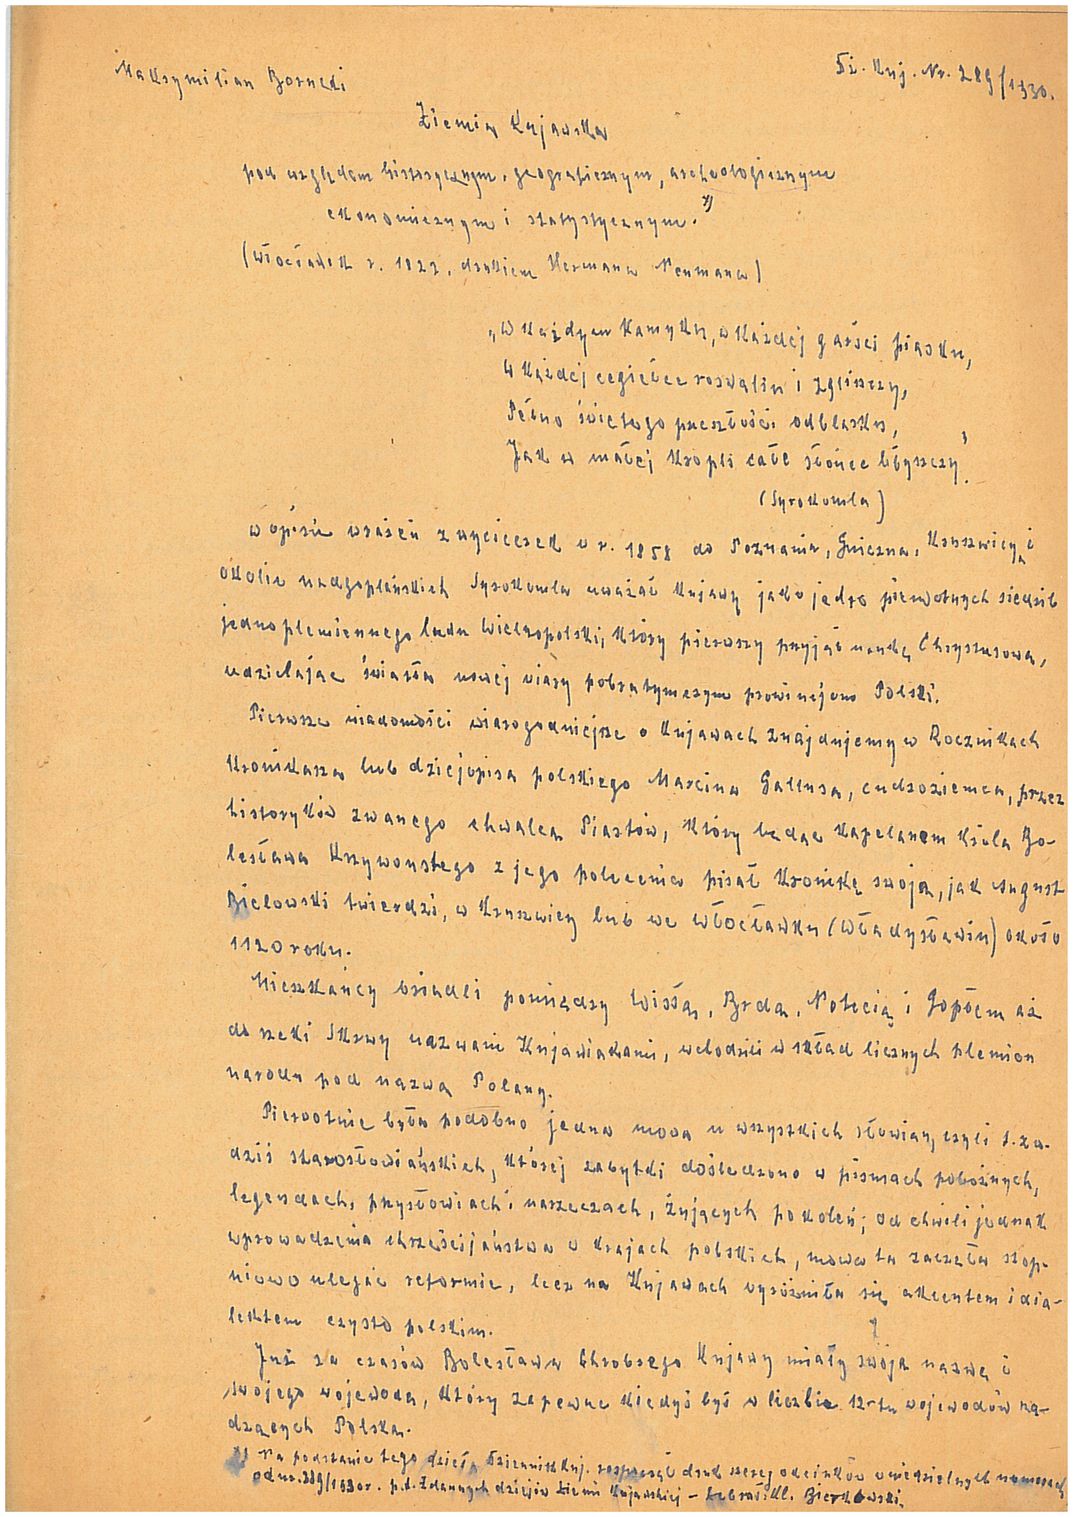 Maksymilian Borucki
Dz. Kuj. Nr. 289/1930.
Ziemia Kujawska
pod względem historycznym, geograficznym, archeologicznym
ekonomicznym i statystycznym. x)
(Włocławek r. 1822, drukiem Hermana Neumana)
„W każdym kamyku, w każdej garści piasku,
W każdej cegiełce rozwalin i zgliszczy,
Pełno świętego przeszłości odblasku,
Jak w małej kropli całe słońce błyszczy"
(Syrokomla)
W opisie wrażeń z wycieczek w r. 1858 do Poznania, Gniezna, Kruszwicy i
okolic nadgoplańskich Syrokomla uważał Kujawy jako jądro pierwotnych siedzib
jednoplemiennego ludu Wielkopolski, który pierwszy przyjął naukę Chrystusową,
udzielając światła nowej wiary pobratymczym prowincjom Polski.
Pierwsze wiadomości wiarogodniejsze o Kujawach znajdujemy w Rocznikach
kronikarza lub dziejopisa polskiego Marcina Gallusa, cudzoziemca, przez
historyków zwanego chwalcą Piastów, który będąc kapelanem króla Bo-
lesława Krzywoustego z jego polecenia pisał kronikę swoją, jak August
Bielowski twierdzi, w Kruszwicy lub we Włocławku (Władysławiu) około
1120 roku.
Mieszkańcy osiadli pomiędzy Wisłą, Brdą, Notecią i Gopłem aż
do rzeki Skrwy nazwani Kujawiakami, wchodzili w skład licznych plemion
narodu pod nazwą Polany.
Pierwotnie była podobno jedna mowa u wszystkich słowian, czyli t. za-
dziś starosłowiańskich, której zabytki dośledzono w pismach pobożnych,
legendach, przysłowiach i narzeczach, żyjących pokoleń; od chwili jednak
wprowadzenia chrześcijaństwa w krajach polskich, mowa ta zaczęła stop-
niowo ulegać reformie, lecz na Kujawach wyróżniła się akcentem i dia-
lektem czysto polskim.
Już za czasów Bolesława Chrobrego Kujawy miały swoją nazwę i
swojego wojewodę, który zapewne kiedyś był w liczbie 12-tu wojewodów rzą-
dzących Polską.
x) Na podstawie tego dzieła Dziennik Kuj. rozpoczął druk szereg odcinków w niedzielnych numerach
od nr. 289/1930 r. p.t. Z dawnych dziejów Ziemi Kujawskiej – Zebrał: Kl. Bierkowski.